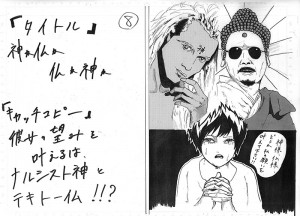 ⑧
『タイトル』
神は仏
仏は神
『キャッチコピー』
彼女の望みを
叶えるは、
ナルシスト神と
テキトー仏!!?
神様、仏様
どうか私の願いを
叶えて下さい